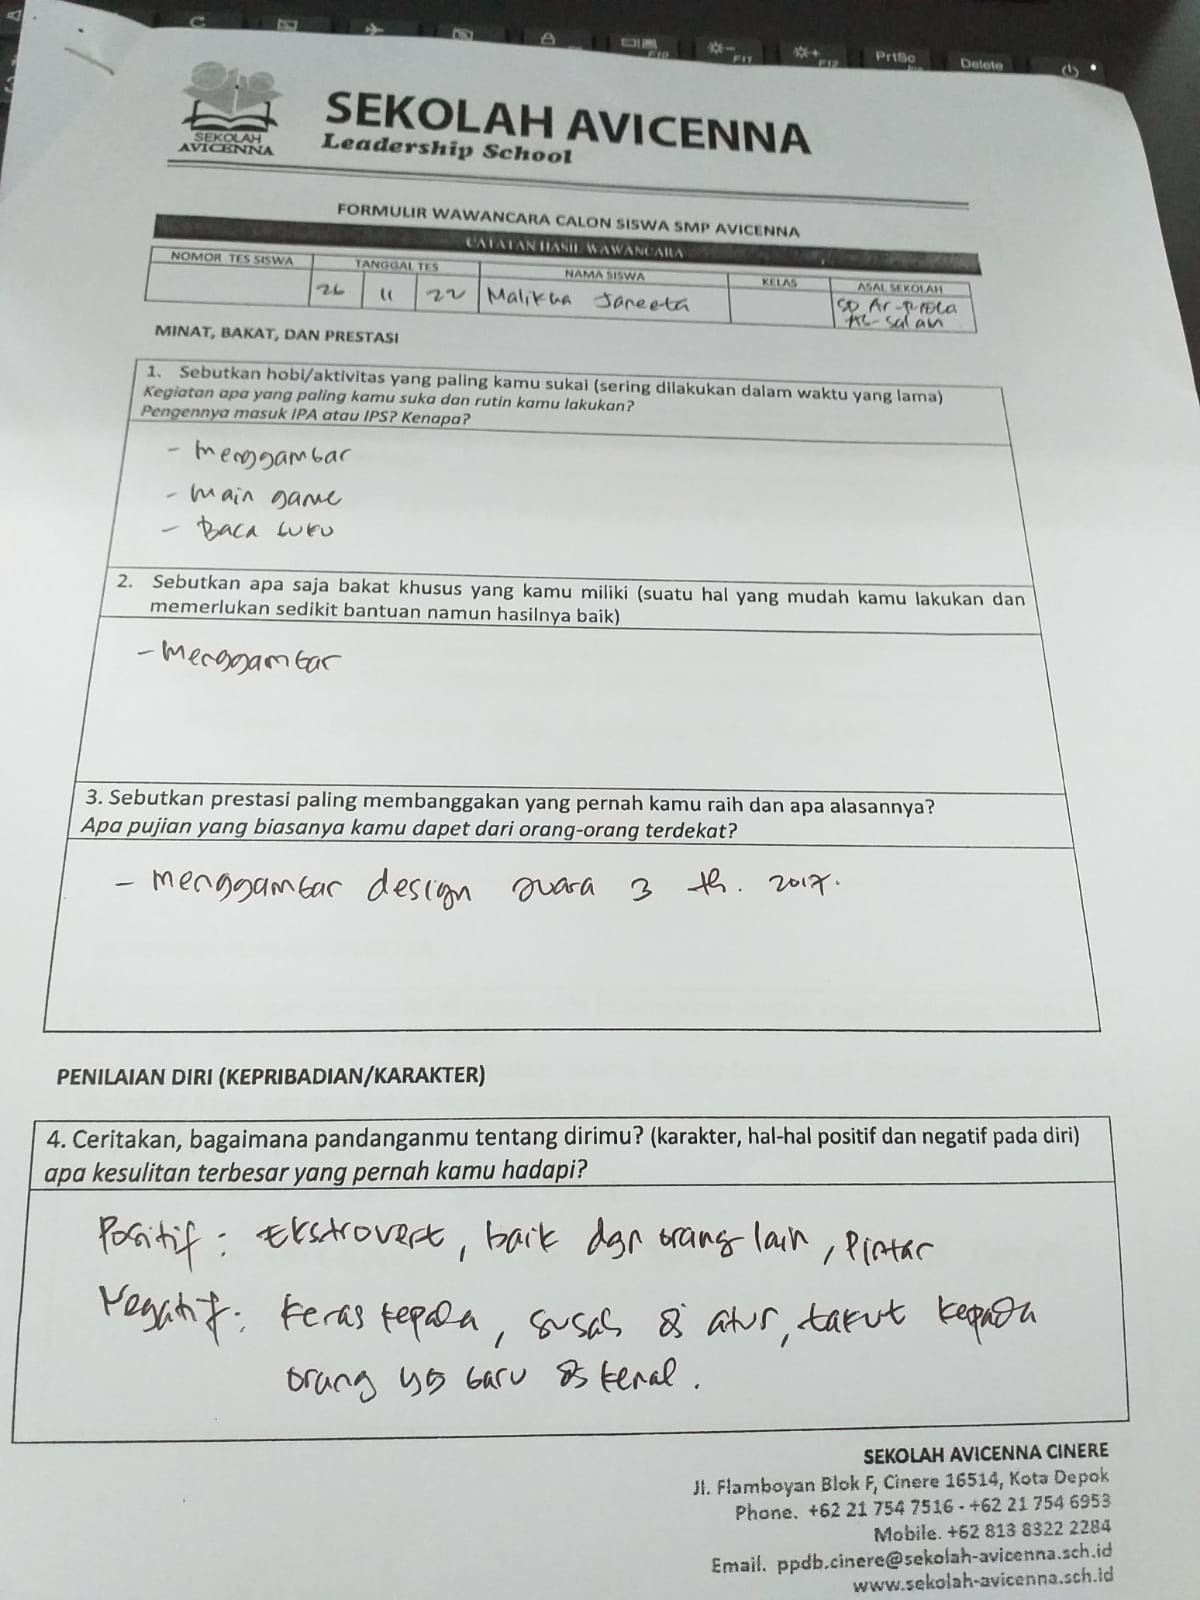 PrtSc
Delete
F10
F11
F12
SEKOLAH
AVICENNA
SEKOLAH AVICENNA
Leadership School
FORMULIR WAWANCARA CALON SISWA SMP AVICENNA
CATATAN HASIL WAWANCARA
NOMOR TES SISWA TANGGAL TES NAMA SISWA KELAS ASAL SEKOLAH
26 11 22 Malikha Janeeta SD Ar-
Al-Salam
MINAT, BAKAT, DAN PRESTASI
1. Sebutkan hobi/aktivitas yang paling kamu sukai (sering dilakukan dalam waktu yang lama)
Kegiatan apa yang paling kamu suka dan rutin kamu lakukan?
Pengennya masuk IPA atau IPS? Kenapa?
- Menggambar
- Main game
- Baca buku
2. Sebutkan apa saja bakat khusus yang kamu miliki (suatu hal yang mudah kamu lakukan dan
memerlukan sedikit bantuan namun hasilnya baik)
- Menggambar
3. Sebutkan prestasi paling membanggakan yang pernah kamu raih dan apa alasannya?
Apa pujian yang biasanya kamu dapet dari orang-orang terdekat?
- Menggambar design juara 3 th. 2017.
PENILAIAN DIRI (KEPRIBADIAN/KARAKTER)
4. Ceritakan, bagaimana pandanganmu tentang dirimu? (karakter, hal-hal positif dan negatif pada diri)
apa kesulitan terbesar yang pernah kamu hadapi?
Positif : Ekstrovert, baik dgn orang lain, Pintar
Negatif : keras kepala, susah di atur, takut kepada
orang yg baru di kenal.
SEKOLAH AVICENNA CINERE
Jl. Flamboyan Blok F, Cinere 16514, Kota Depok
Phone. +62 21 754 7516 - +62 21 754 6953
Mobile. +62 813 8322 2284
Email. ppdb.cinere@sekolah-avicenna.sch.id
www.sekolah-avicenna.sch.id